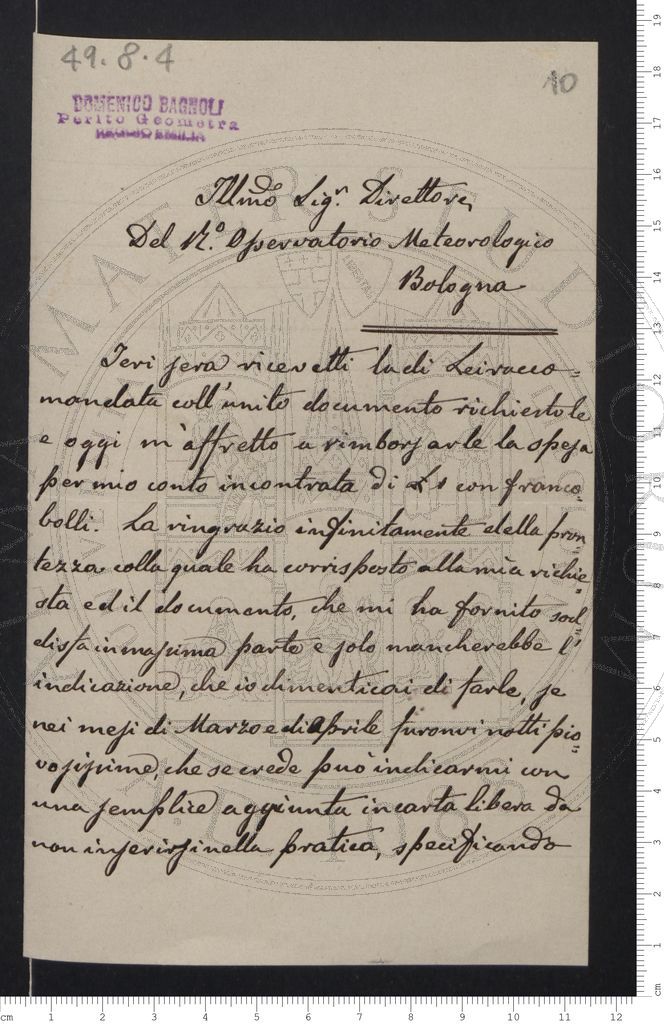 49.8.4
10
DOMENICO BAGNOLI
Perito Geometra
REGGIO EMILIA
Illmo Sigr. Direttore
Del R.° Osservatorio Meteorologico
Bologna
Ieri sera ricevetti la di Lei racco=
mandata coll'unito documento richiestole
e oggi m'affretto a rimborsarle la spesa
per mio conto incontrata di L 1 con franco=
bolli. La ringrazio infinitamente della pron=
tezza colla quale ha corrisposto alla mia richie=
sta ed il documento, che mi ha fornito sod=
disfa in massima parte e solo mancherebbe l'
indicazione, che io dimenticai di farle, se
nei mesi di Marzo e di Aprile furonvi notti pio=
vosissime, che se crede può indicarmi con
una semplice aggiunta in carta libera da
non inserirsi nella pratica, specificando